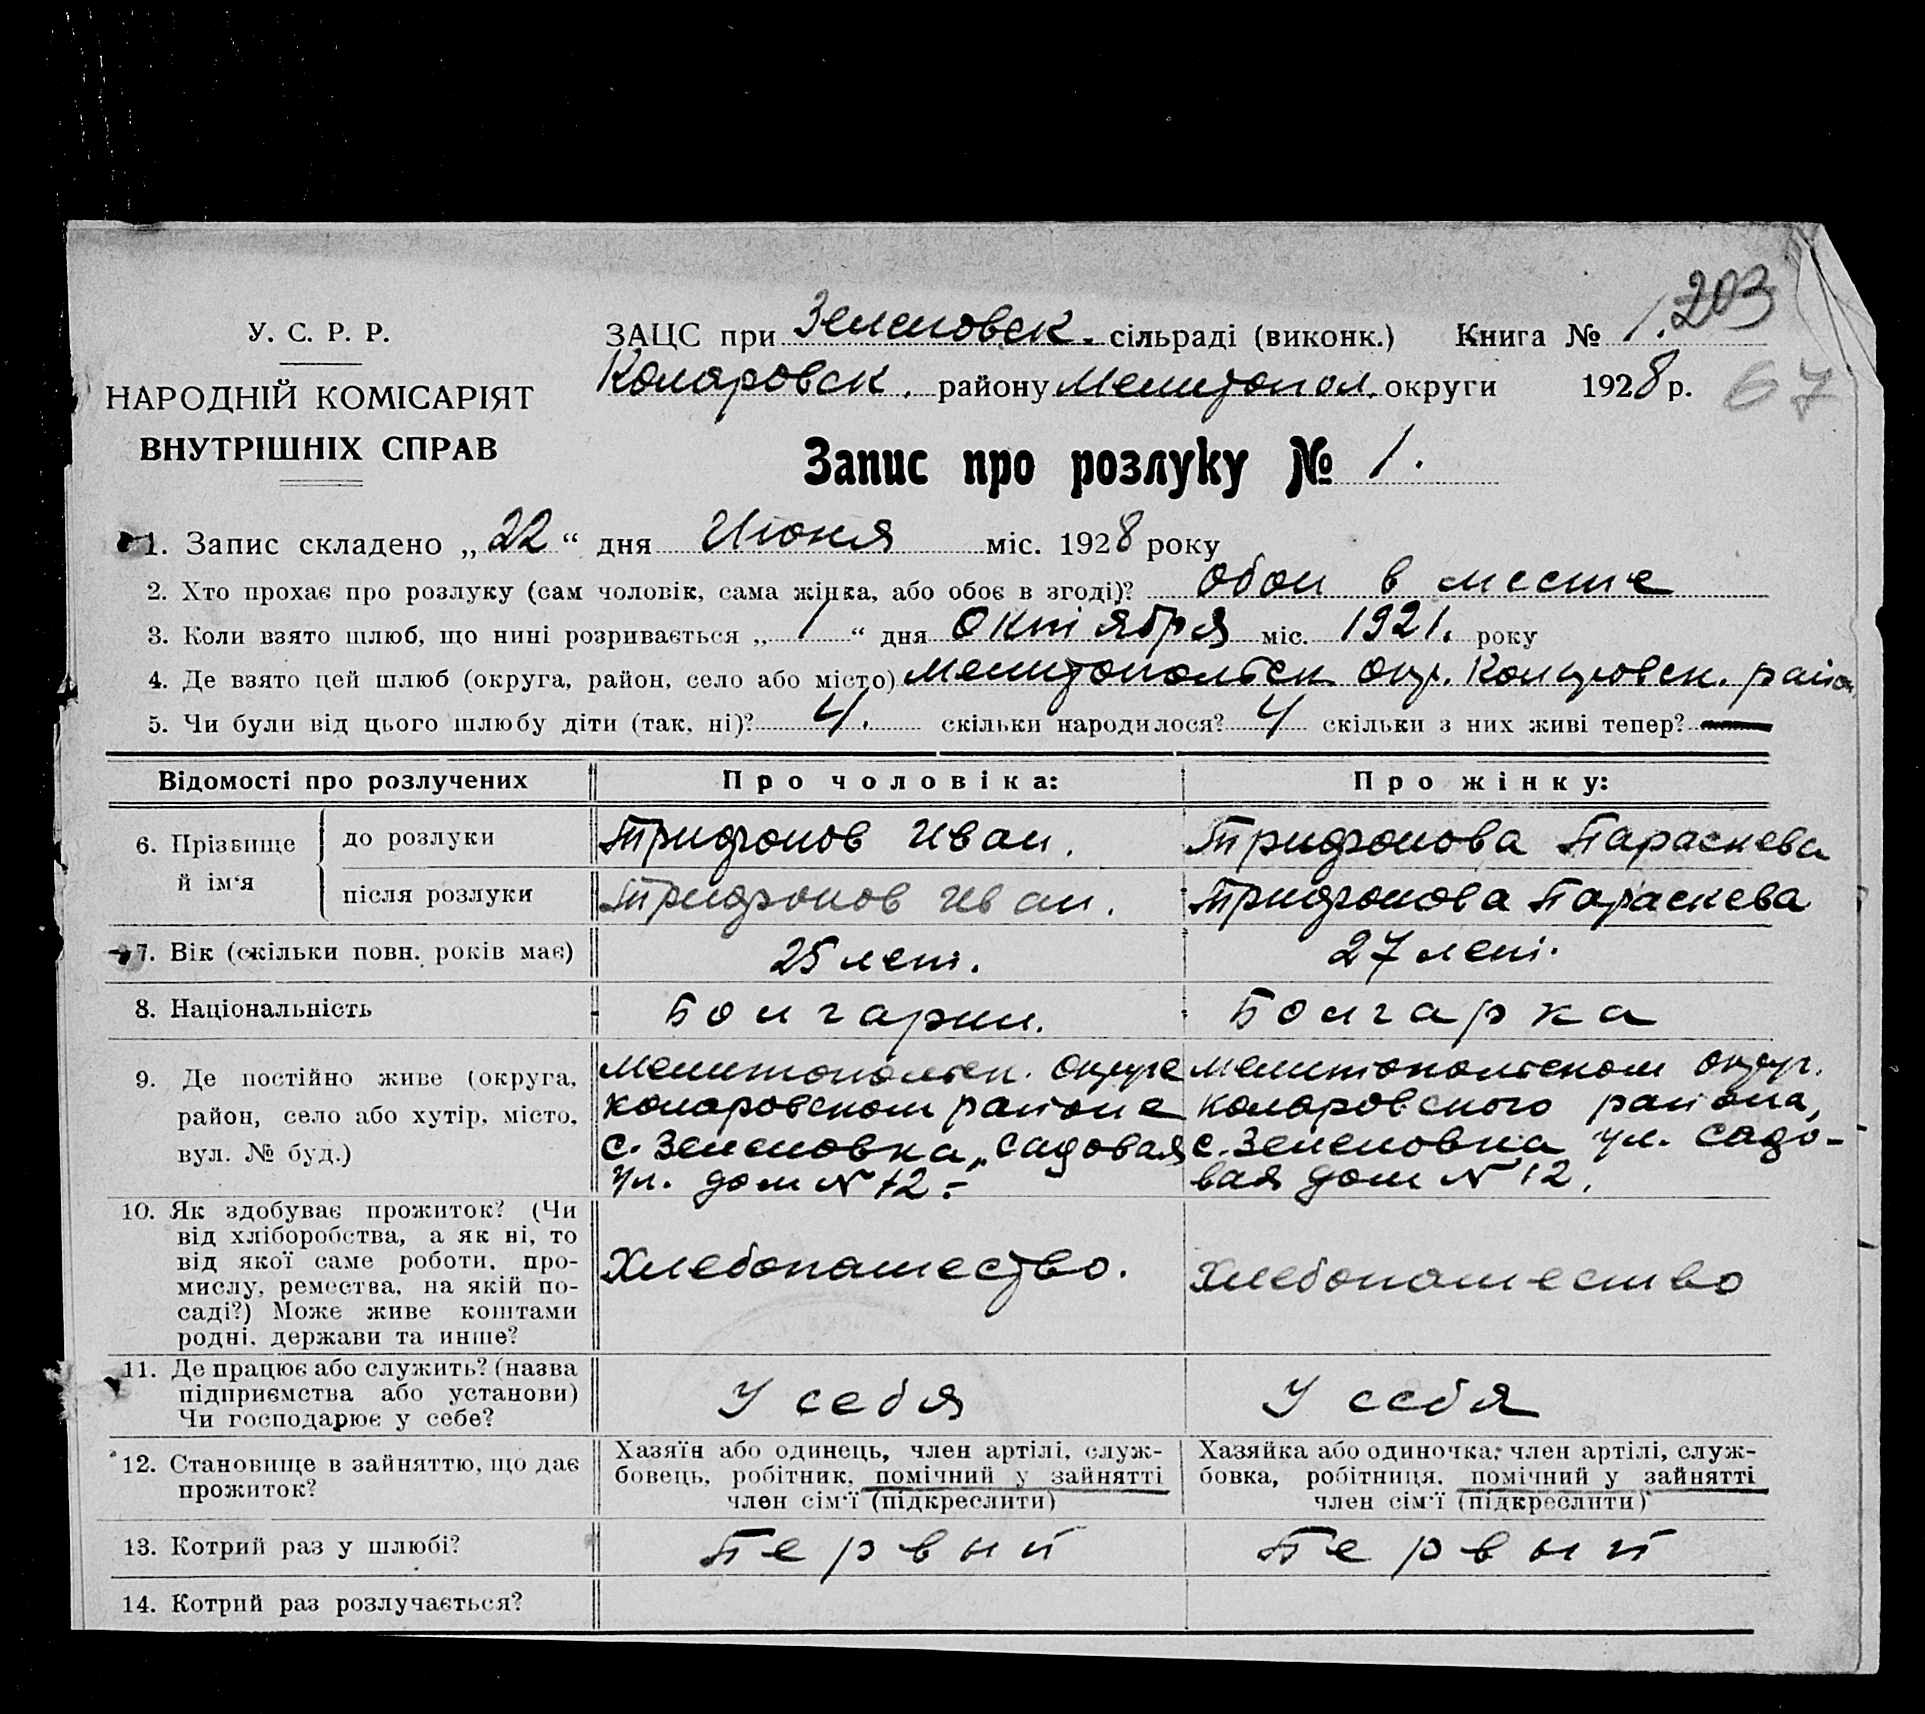 203
У. С. Р. Р.
НАРОДНІЙ КОМІСАРІЯТ
ВНУТРІШНІХ СПРАВ
ЗАЦС при Зеленовск. сільраді (виконк.) Книга № 1.
Коларовск. району Мелитопол. округи 1928 р.
67
Запис про розлуку № 1.
1. Запис складено „22“ дня Июня міс. 1928 року
2. Хто прохає про розлуку (сам чоловік, сама жінка, або обоє в згоді)? обои в месте
3. Коли взято шлюб, що нині розривається „1“ дня Октября міс. 1921. року
4. Де взято цей шлюб (округа, район, село або місто) Мелитопольск окр. Коларовск. район
5. Чи були від цього шлюбу діти (так, ні)? 4. скільки народилося? 4 скільки з них живі тепер?
Відомості про розлучених Про чоловіка: Про жінку:
6. Прізвище й ім‘я
до розлуки Трифонов Иван. Трифонова Параскева
після розлуки Трифонов Иван. Трифонова Параскева
7. Вік (скільки повн. років має) 25 лет. 27 лет.
8. Національність Болгарин. Болгарка
9. Де постійно живе (округа,
район, село або хутір, місто,
вул. № буд.)
Мелитопольск. округе
коларовском районе
с. Зеленовка, садовая
ул. дом № 12.-
мелитопольском окр.
коларовского района,
с. Зеленовка ул. садо-
вая дом № 12.
10. Як здобуває прожиток? (Чи
від хліборобства, а як ні, то
від якої саме роботи, про-
мислу, ремества, на якій по-
саді?) Може живе коштами
родні, держави та инше?
Хлебопашество. Хлебопашество
11. Де працює або служить? (назва
підприємства або установи)
Чи господарює у себе?
У себя У себя
12. Становище в зайняттю, що дає
прожиток?
Хазяїн або одинець, член артілі, служ-
бовець, робітник, помічний у зайнятті
член сім‘ї (підкреслити)
Хазяйка або одиночка, член артілі, служ-
бовка, робітниця, помічний у зайнятті
член сім‘ї (підкреслити)
13. Котрий раз у шлюбі? Первый Первый
14. Котрий раз розлучається?